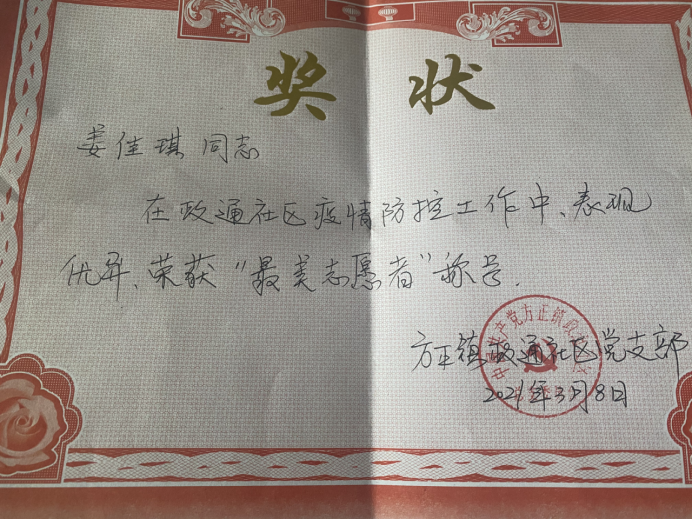 奖 状
姜佳琪 同志
在政通社区疫情防控工作中、表现
优异、荣获“最美志愿者”称号.
方正镇政通社区党支部
2021年3月8日